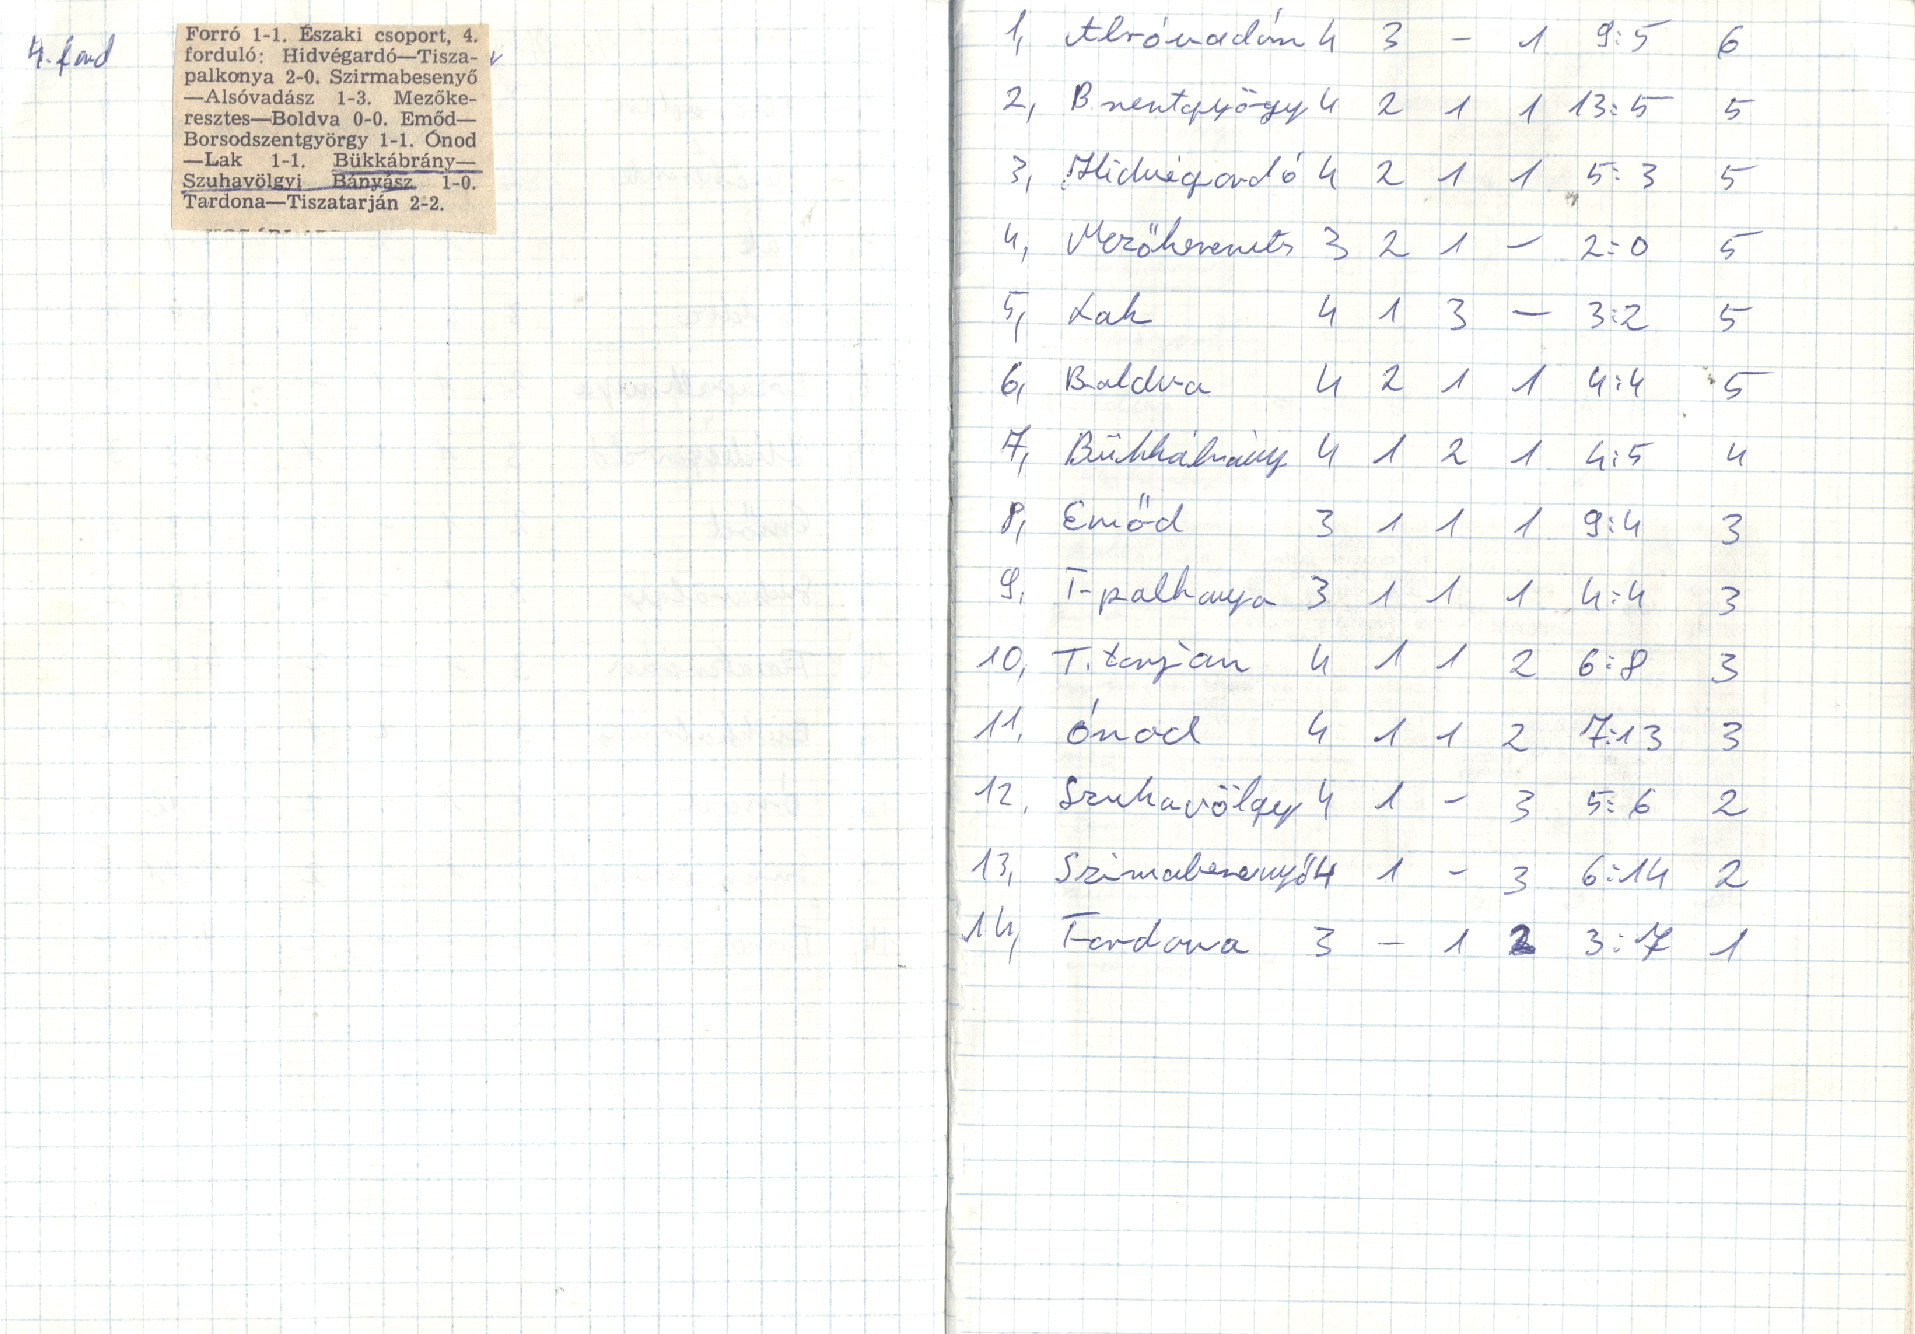 4. ford
Forró 1-1. Északi csoport, 4.
forduló: Hidvégardó—Tisza-
palkonya 2-0. Szirmabesenyő
—Alsóvadász 1-3. Mezőke-
resztes—Boldva 0-0. Emőd—
Borsodszentgyörgy 1-1. Ónod
—Lak 1-1. Bükkábrány—
Szuhavölgyi Bányász 1-0.
Tardona—Tiszatarján 2-2.
1, Alsóvadász 4 3 - 1 9:5 6
2, B.szentgyörgy 4 2 1 1 13:5 5
3, Hidvégardó 4 2 1 1 5:3 5
4, Mezőkereszts 3 2 1 - 2:0 5
5, Lak 4 1 3 - 3:2 5
6, Boldva 4 2 1 1 4:4 5
7, Bükkábrány 4 1 2 1 4:5 4
8, Emőd 3 1 1 1 9:4 3
9, T-palkonya 3 1 1 1 4:4 3
10, T.tarján 4 1 1 2 6:8 3
11, Ónod 4 1 1 2 7:13 3
12, Szuhavölgy 4 1 - 3 5:6 2
13, Szirmabesenyő 4 1 - 3 6:14 2
14, Tardona 3 - 1 2 3:7 1